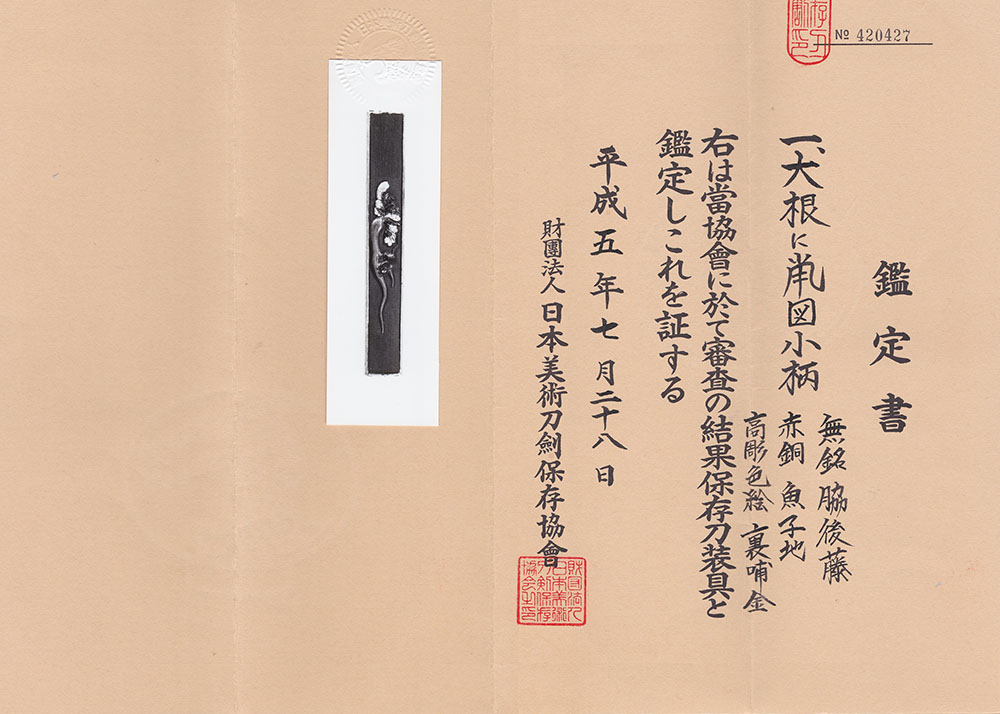 № 420427
鑑定書
一、大根に鼡図小柄
無銘 脇後藤
赤銅 魚子地
高彫色絵 裏哺金
右は當協會に於て審査の結果保存刀装具と
鑑定しこれを証する
平成五年七月二十八日
財團法人 日本美術刀劍保存協會
財団法人
日本美術
刀剣保存
協会之印